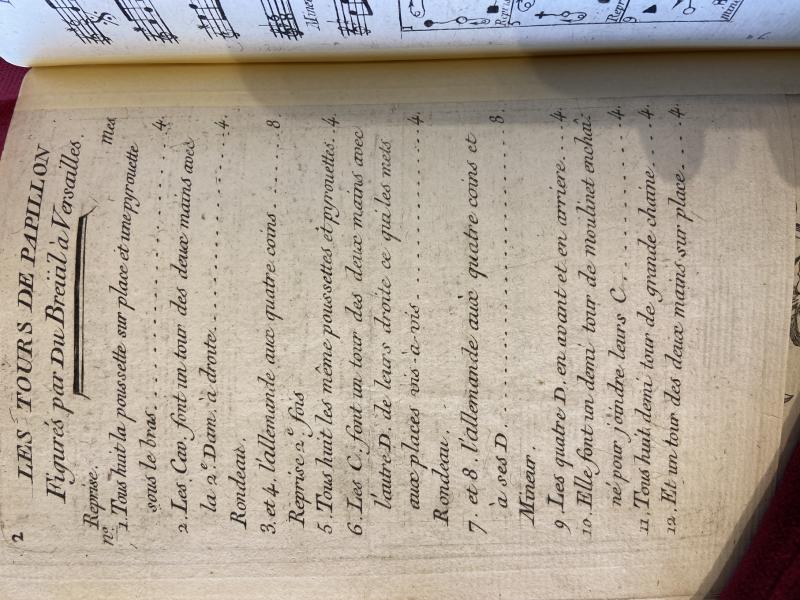 2
LES TOURS DE PAPILLON
Figurés par Du Breüil à Versailles.
Reprise.
no. mes
1. Tous huit la poussette sur place et une pyrouette
sous le bras. 4.
2. Les Cav. font un tour des deux mains avec
la 2e. Dam. à droite. 4.
Rondeau.
3. et 4. l'allemande aux quatre coins 8
Reprise 2e. fois
5. Tous huit les même poussettes et pyrouettes. 4.
6. Les C. font un tour des deux mains avec
l'autre D. de leurs droite ce qui les mets
aux places vis-à-vis 4.
Rondeau.
7. et 8. l'allemande aux quatre coins et
a ses D. 8.
Mineur.
9. Les quatre D. en avant et en arriere. 4.
10. Elle font un demi tour de moulinet enchaî
né pour joindre leurs C. 4.
11. Tous huit demi tour de grande chaine 4.
12. Et un tour des deux mains sur place. 4.